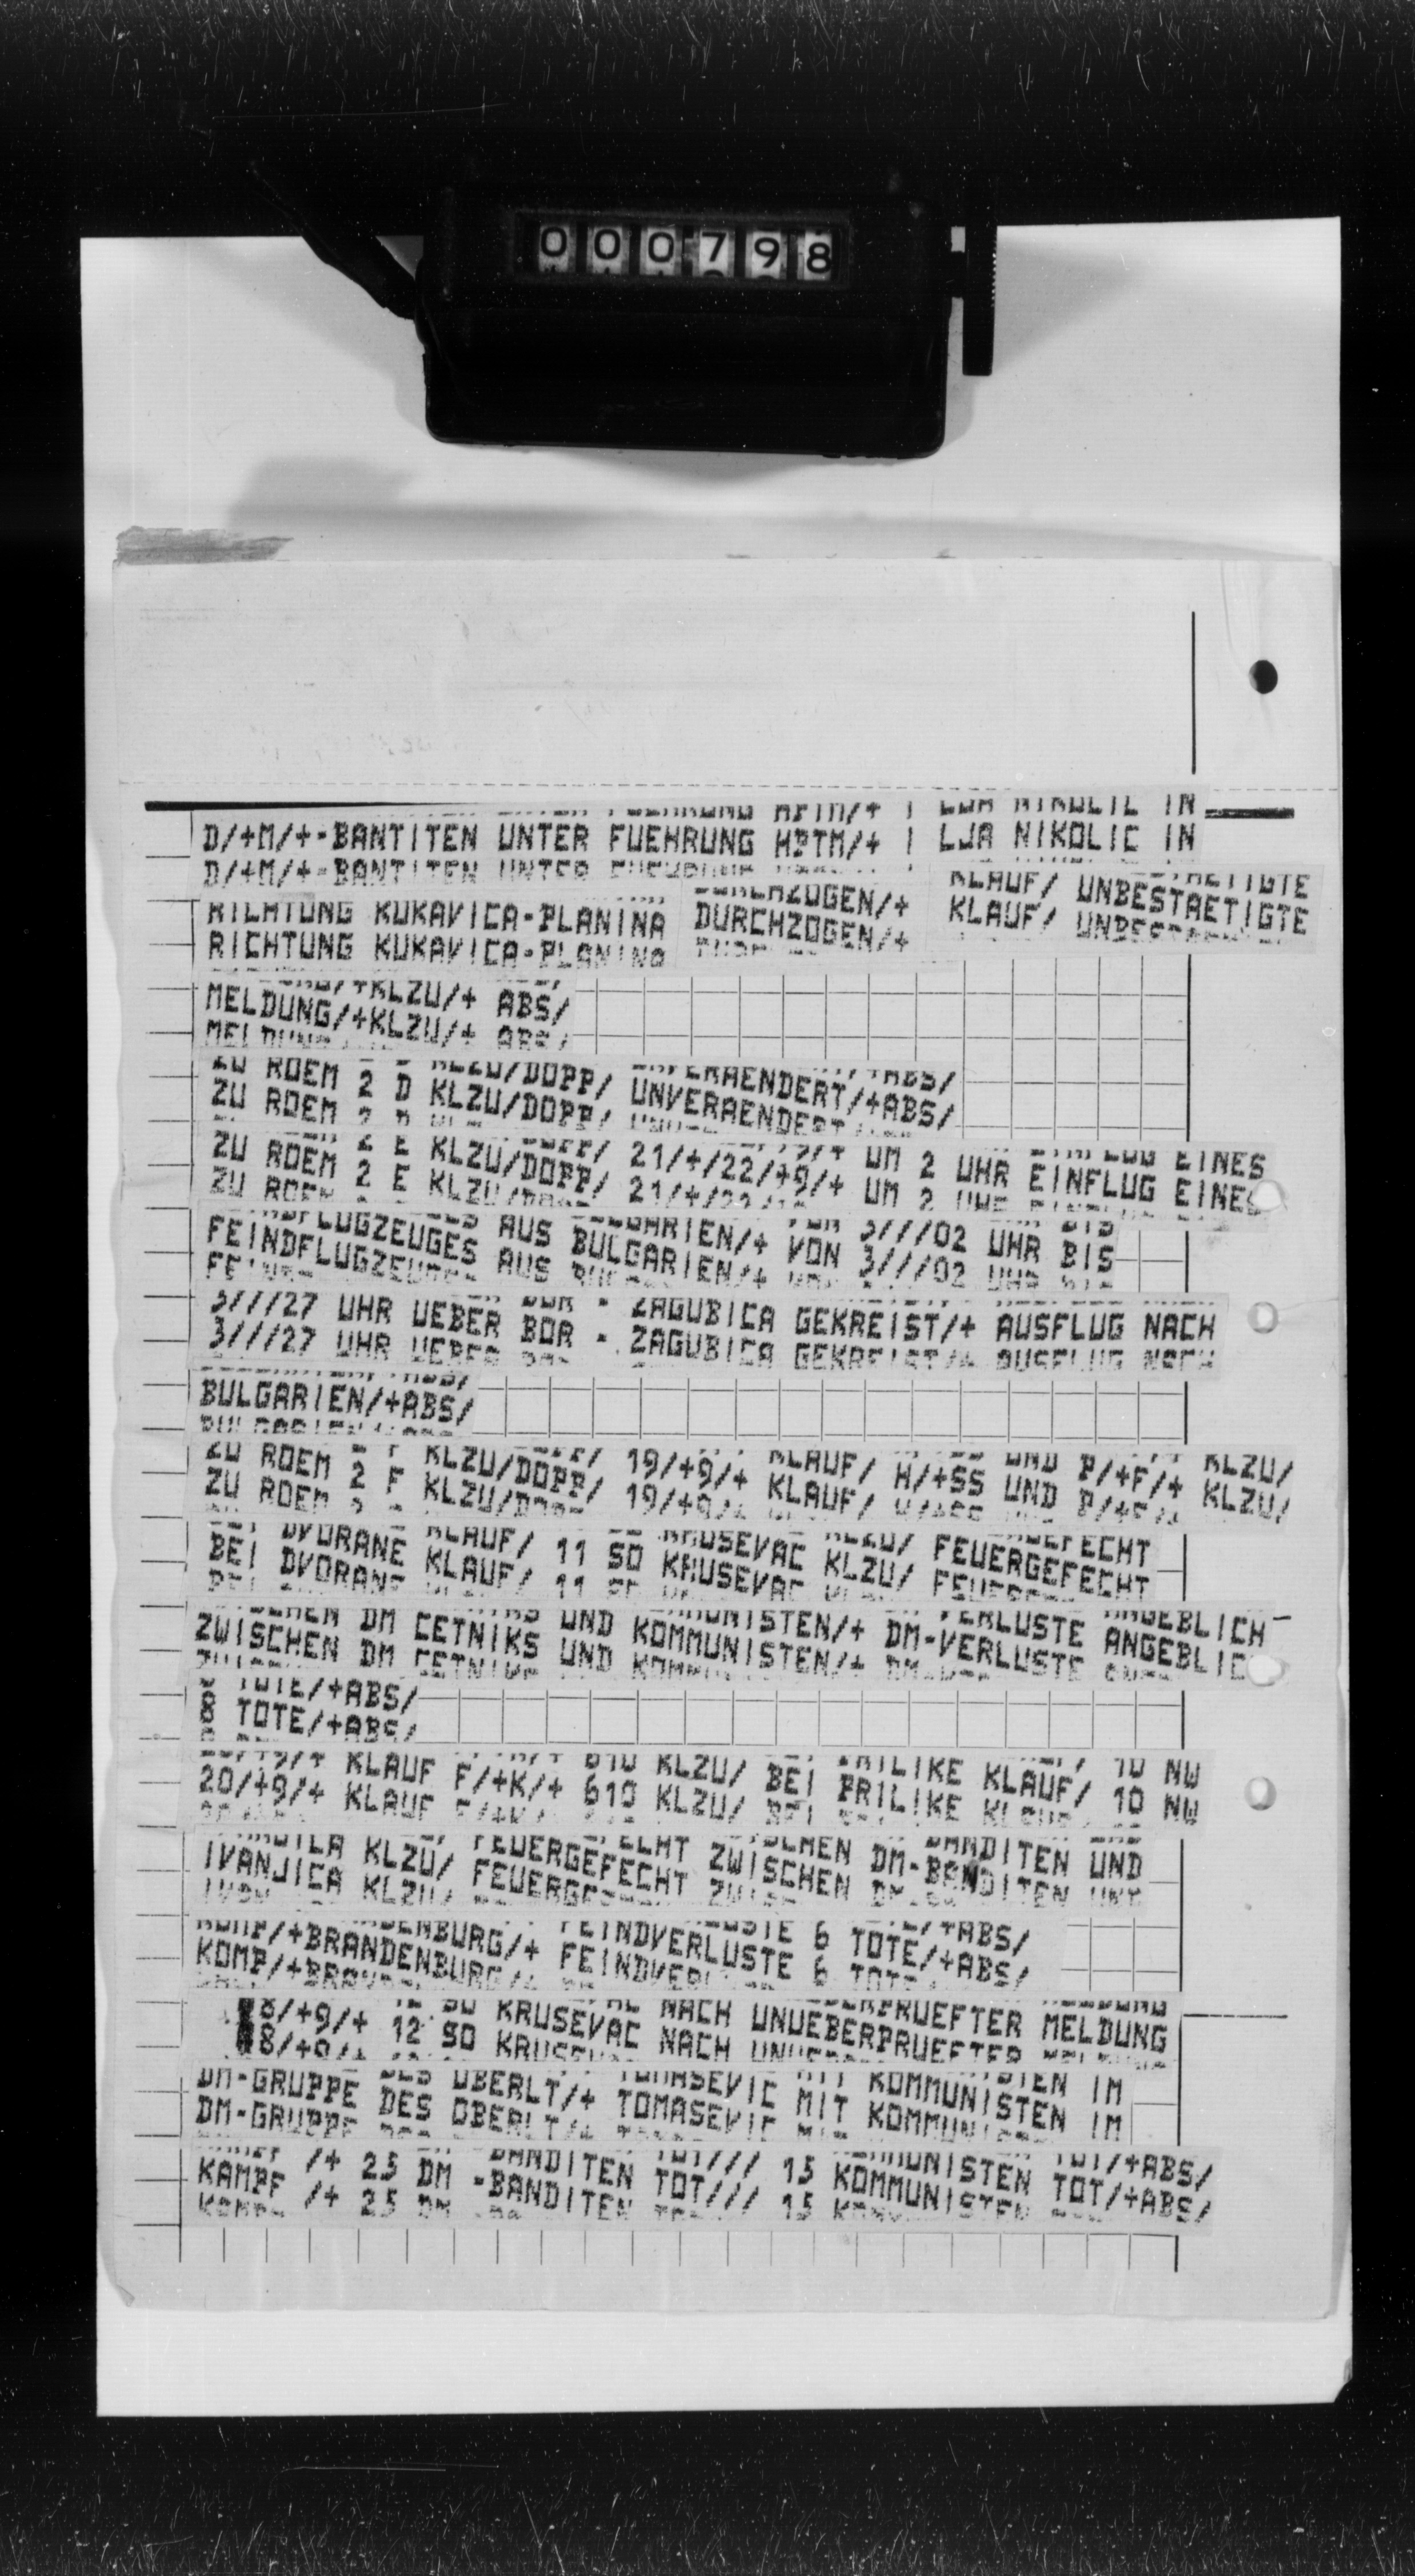 000798
D/+M/+-BANTITEN UNTER FUEHRUNG HPTM/+ I LJA NIKOLIC IN
RICHTUNG KUKAVICA-PLANINA DURCHZOGEN/+ KLAUF/ UNBESTAETIGTE
MELDUNG/+KLZU/+ ABS/
ZU ROEM 2 D KLZU/DOPP/ UNVERAENDERT/+ABS/
ZU ROEM 2 E KLZU/DOPP/ 21/+/22/+9/+ UM 2 UHR EINFLUG EINES
FEINDFLUGZEUGES AUS BULGARIEN/+ VON 3///02 UHR BIS
3///27 UHR UEBER BOR - ZAGUBICA GEKREIST/+ AUSFLUG NACH
BULGARIEN/+ABS/
ZU ROEM 2 F KLZU/DOPP/ 19/+9/+ KLAUF/ H/+SS UND P/+F/+ KLZU/
BEI DVORANE KLAUF/ 11 SO KRUSEVAC KLZU/ FEUERGEFECHT
ZWISCHEN DM CETNIKS UND KOMMUNISTEN/+ DM-VERLUSTE ANGEBLICH
8 TOTE/+ABS/
20/+9/+ KLAUF F/+K/+ 610 KLZU/ BEI PRILIKE KLAUF/ 10 NW
IVANJICA KLZU/ FEUERGEFECHT ZWISCHEN DM-BANDITEN UND
KOMP/+BRANDENBURG/+ FEINDVERLUSTE 6 TOTE/+ABS/
18/+9/+ 12 SO KRUSEVAC NACH UNUEBERPRUEFTER MELDUNG
DM-GRUPPE DES OBERLT/+ TOMASEVIC MIT KOMMUNISTEN IM
KAMPF /+ 25 DM -BANDITEN TOT/// 15 KOMMUNISTEN TOT/+ABS/